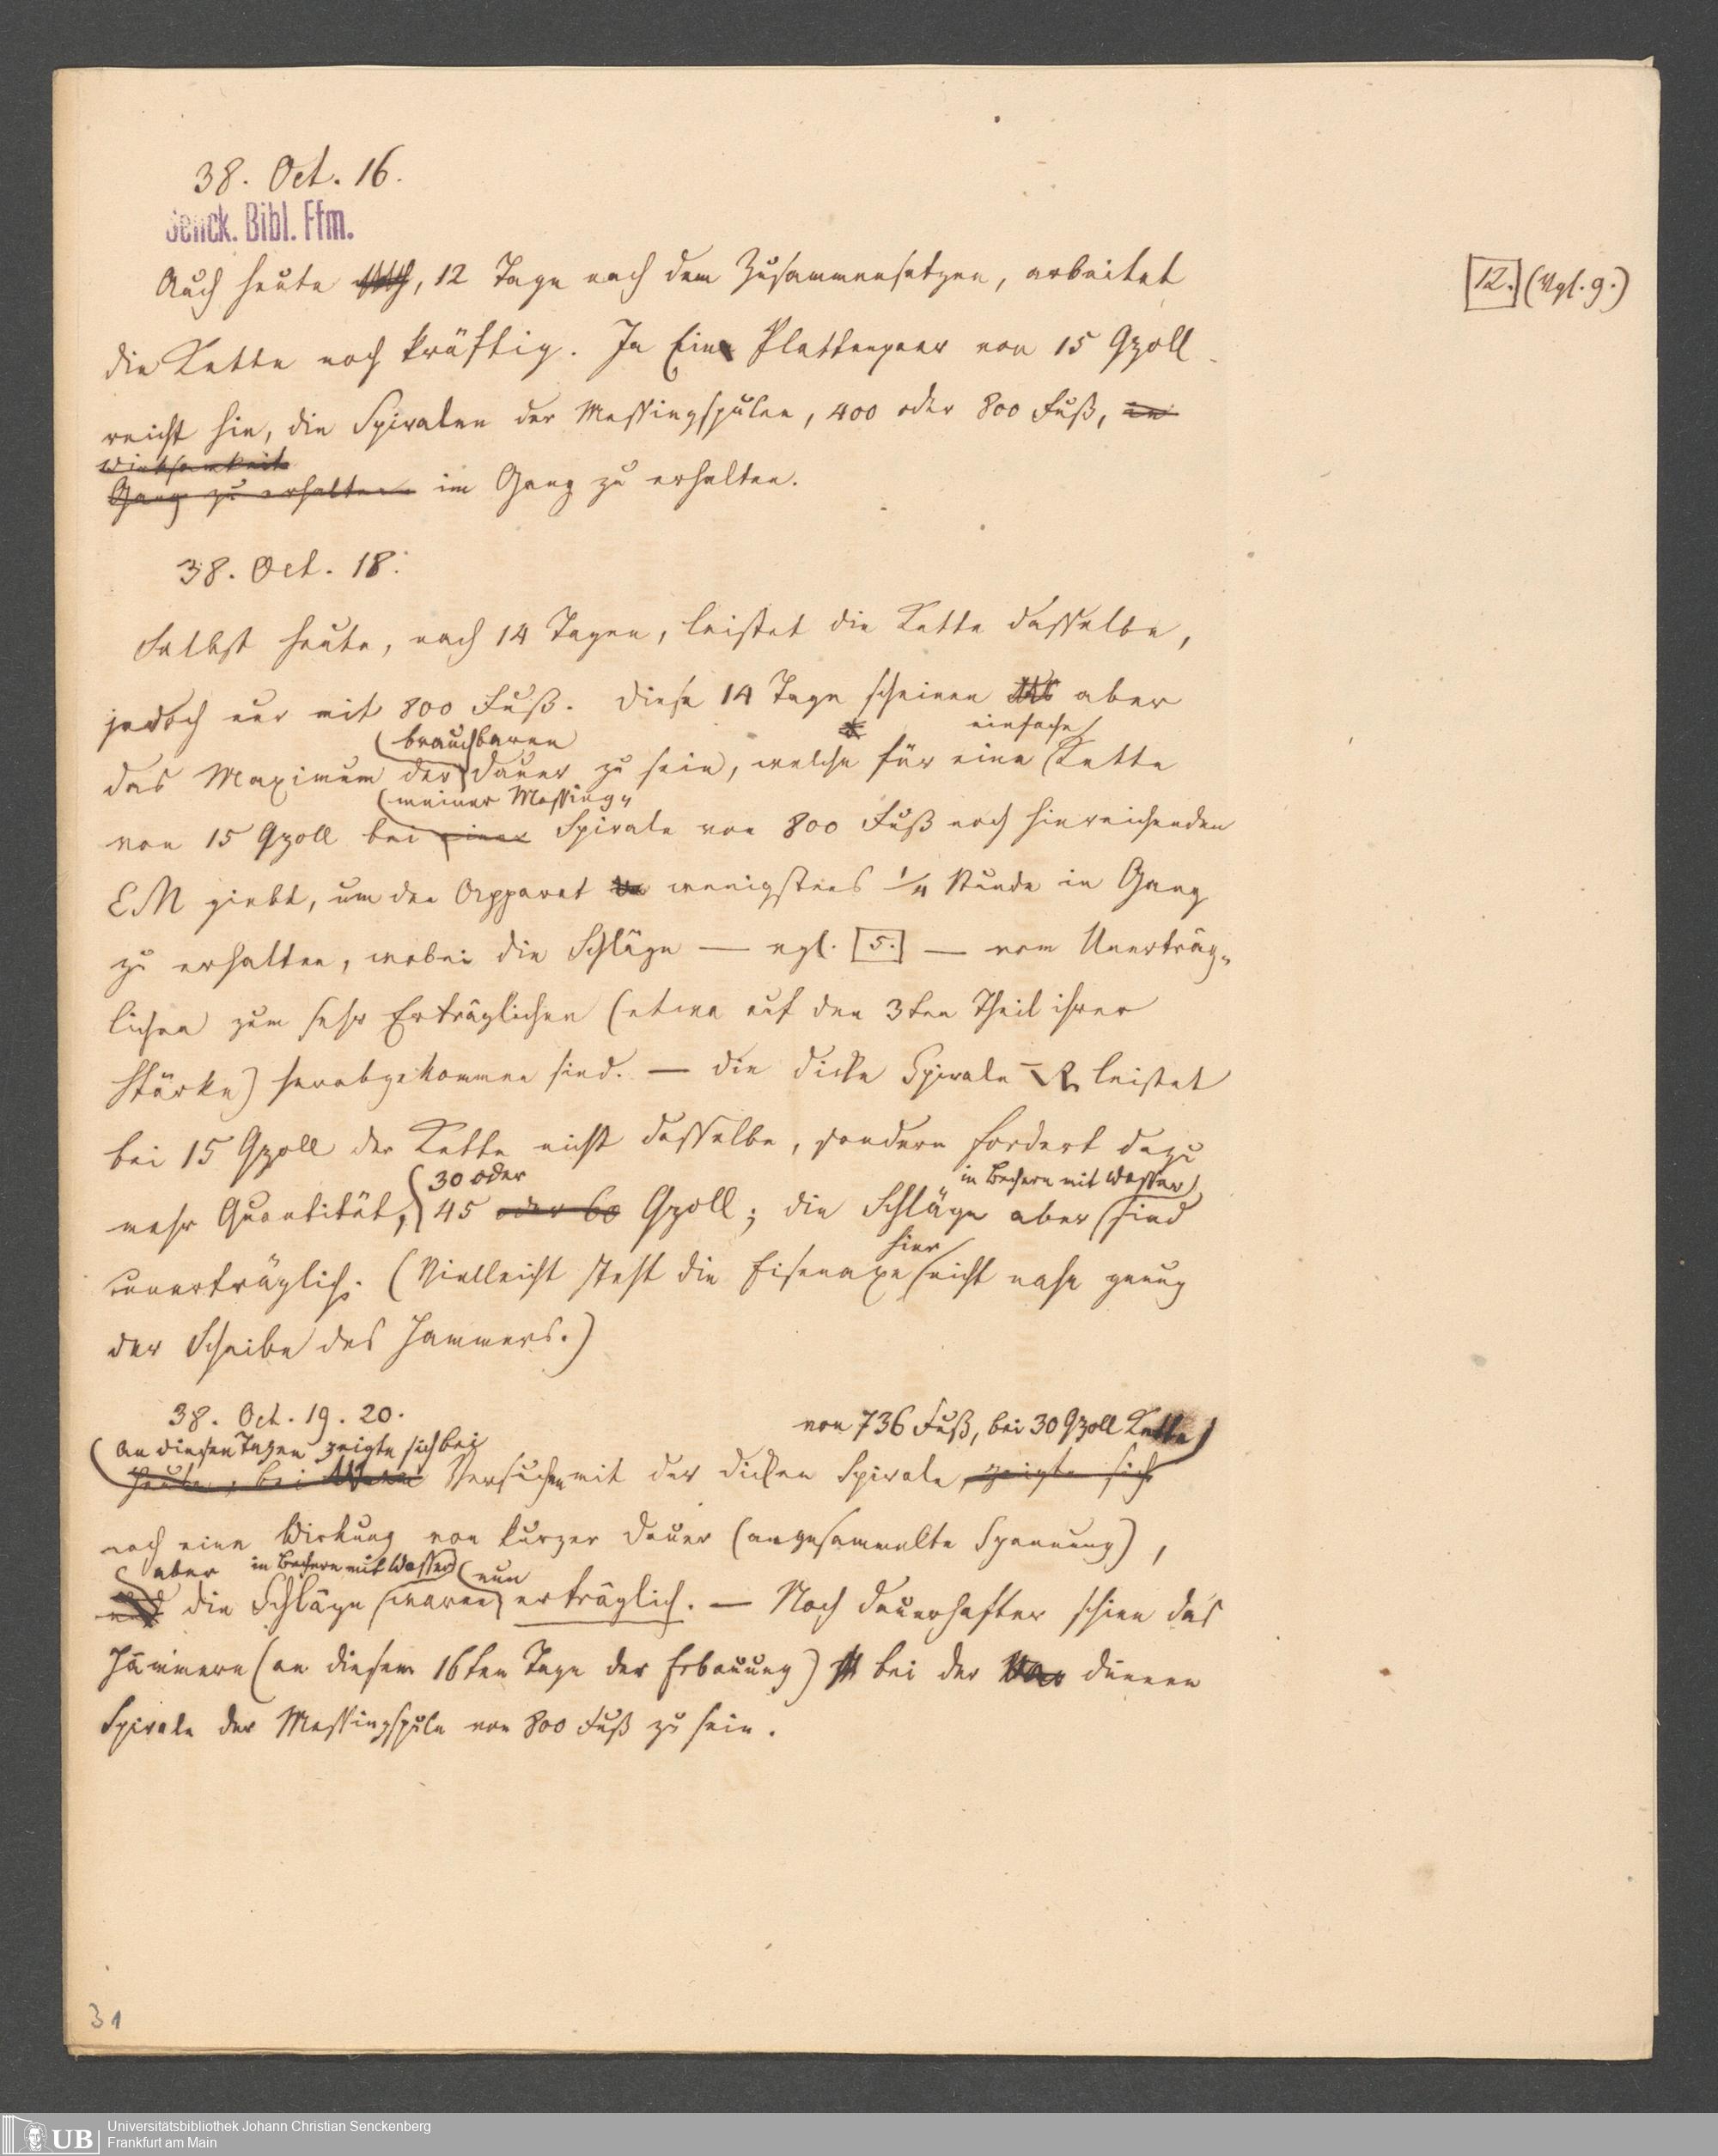 38. Oct. 16.
Senck. Bibl. Ffm.
Auch heute, 12 Tage nach dem Zusammensetzen, arbeitet
12. (Vgl. 9.)
die Kette noch kräftig. Ja Ein Plattenpaar von 15 Qzoll
reicht hin, die Spiralen der Messingspulen, 400 oder 800 Fuß, in
Wirksamkeit
Gang zu erhalten im Gang zu erhalten.
38. Oct. 18.
Selbst heute, nach 14 Tagen, leistet die Kette dasselbe,
jedoch nur mit 800 Fuß. Diese 14 Tage scheinen aber
brauchbaren einfache
das Maximum der Dauer zu sein, welche für eine Kette
meiner Messing-
von 15 Qzoll bei einer Spirale von 800 Fuß noch hinreichenden
EM giebt, um den Apparat wenigstens 1/4 Stunde in Gang
zu erhalten, wobei die Schläge — vgl. 5. — vom Unerträg-
lichen zum sehr Erträglichen (etwa auf den 3ten Theil ihrer
Stärke) herabgekommen sind. — Die dicke Spirale R leistet
bei 15 Qzoll der Kette nicht dasselbe, sondern fordert dazu
30 oder in Bechern mit Wasser
mehr Quantität, 45 oder 60 Qzoll; die Schläge aber sind
hier
unerträglich. (Vielleicht steht die Eisenaxe nicht nahe genug
der Scheibe des Hammers.)
38. Oct. 19. 20.
von 736 Fuß, bei 30 Qzoll Kette
An diesen Tagen zeigte sich bei
Heute, bei Versuchen mit der dicken Spirale, zeigte sich
noch eine Wirkung von kurzer Dauer (angesammelte Spannung),
aber in Bechern mit Wasser nun
und die Schläge waren erträglich. — Noch dauerhafter schien das
Hämmern (an diesem 16ten Tage der Erbauung) bei der dünnen
Spirale der Messingspule von 800 Fuß zu sein.
31
UB
Universitätsbibliothek Johann Christian Senckenberg
Frankfurt am Main